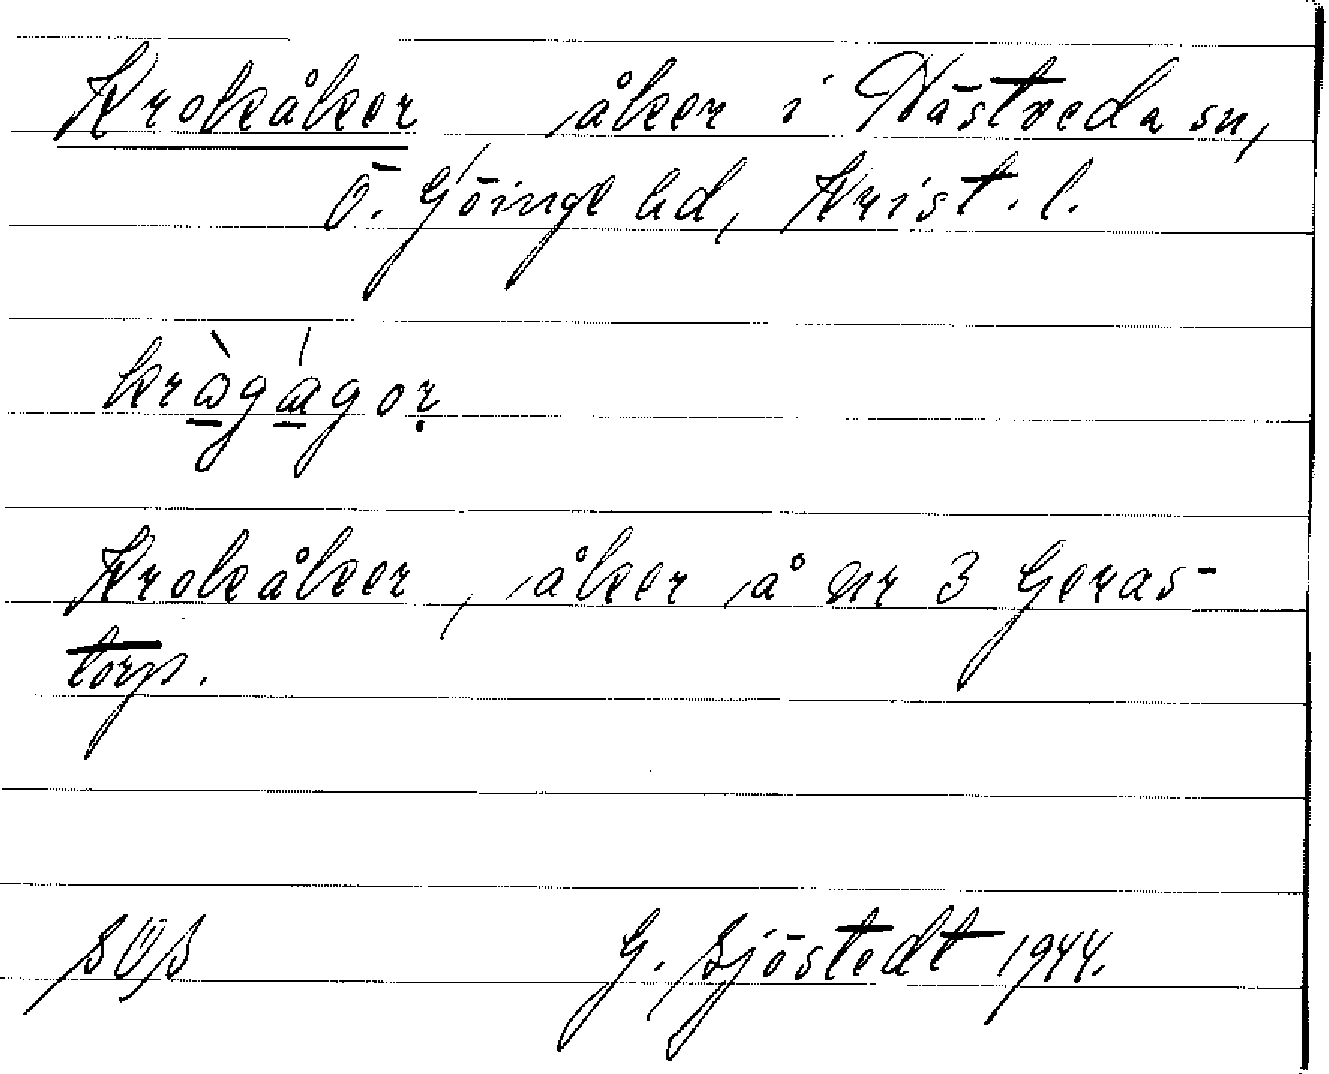 Krokåker åker i Nästveda sn,
Ö. Göinge hd, Krist. l.
Krokåker, åker å nr 3 Geras-
torp.
SOS G. Sjöstedt 1944.